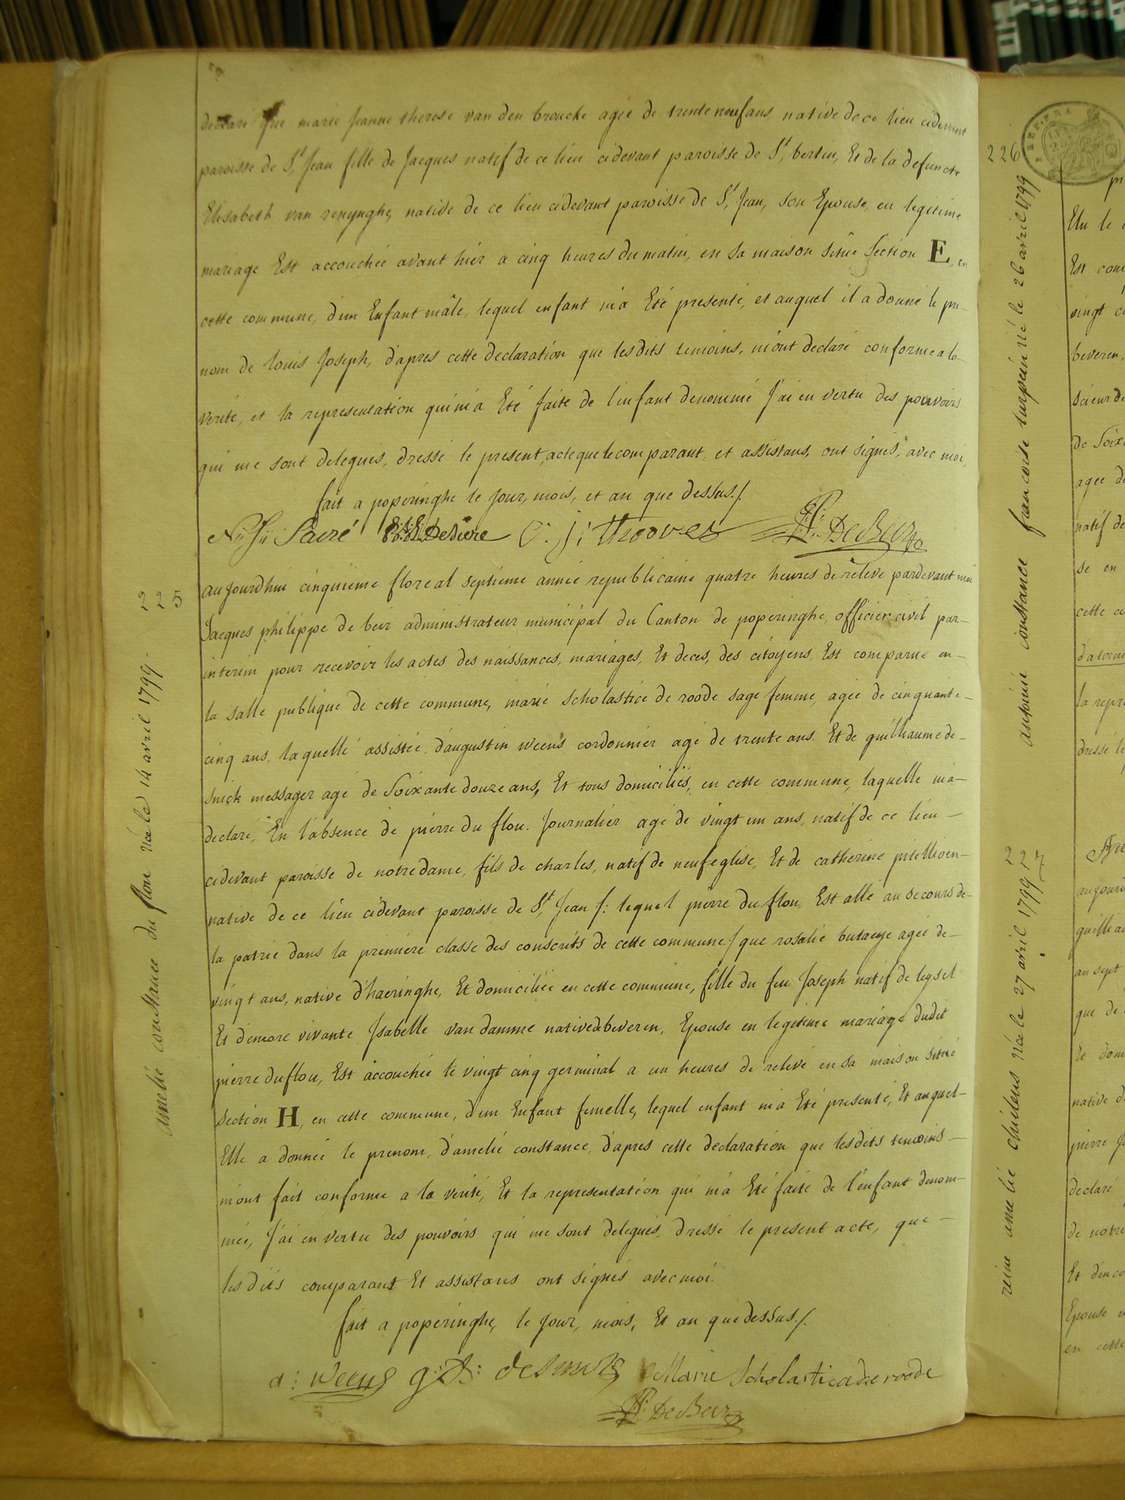 declaré que marie Jeanne therese van den broucke agée de trente neuf ans native de ce lieu cidevant
paroisse de St Jean fille de Jacques natif de ce lieu cidevant paroisse de St bertin, Et de la defuncte
Elisabeth van renynghe, native de ce lieu cidevant paroisse de St Jean, son Epouse en legitime
mariage Est accouchée avant hier a cinq heures du matin, en sa maison située Section E, en
cette commune, d'un Enfant mâle, lequel enfant m'a Eté presenté, et auquel il a donné le pre-
nom de louis Joseph, d'apres cette declaration que lesdits temoins, m'ont declaré conforme a la
verité, et la representation qui m'a Eté faite de l'enfant denommé J'ai en vertu des pouvoirs
qui me sont delegués, dressé le present acte que le comparant, et assistans, ont signés avec moi,
fait a poperinghe le Jour, mois, et an que dessus /.
DeBeir
aujourdhui cinquieme floreal septieme année republicaine quatre heures de relevé pardevant moi
Jacques philippe de beir administrateur municipal du Canton de poperinghe, officier civil par-
interim pour recevoir les actes des naissances, mariages, Et deces, des citoyens, Est comparue en-
la salle publique de cette commune, marie scholastice de roode sage femme, agée de cinquante-
cinq ans, laquelle assistée d'augustin weens cordonnier agé de trente ans, Et de guilliaume de-
messager agé de Soixante douze ans, Et tous domiciliés, en cette commune, laquelle m'a-
declaré, En l'absence de pierre du flou, Journalier agé de vingt un ans, natif de ce lieu-
cidevant paroisse de notre dame, fils de charles, natif de neufeglise, Et de catherine
native de ce lieu cidevant paroisse de St Jean /: lequel pierre du flou, Est allé au secours de-
la patrie dans la premiere classe des conscrits de cette commune / que rosalie butaeye agée de-
vingt ans, native d'haeringhe, Et domiciliée en cette commune, fille du feu Joseph natif de leysel
Et d'encore vivante Isabelle van damme native de beveren, Epouse en legitime mariage dudit
pierre du flou, Est accouchée le vingt cinq germinal a un heures de relevé en sa maison située
Section H, en cette commune, d'un Enfant femelle, lequel enfant m'a Eté presenté, Et auquel-
Elle a donné le prenom, d'amelie constance, d'apres cette declaration que lesdits temoins-
m'ont fait conforme a la verité, Et la representation qui m'a Eté faite de l'enfant denom-
mée, J'ai en vertu des pouvoirs qui me sont delegués, dressé le present acte, que-
lesdits comparant Et assistans ont signés avec moi.
fait a poperinghe, le Jour, mois, Et an que dessus /.
a: weens g: Marie Scholastica de roode
DeBeir
125
amelie constance du flou née le 14 avril 1799.
226
antoine constance francoise née le 26 avril 1799
127
reine amelie née le 27 avril 1799